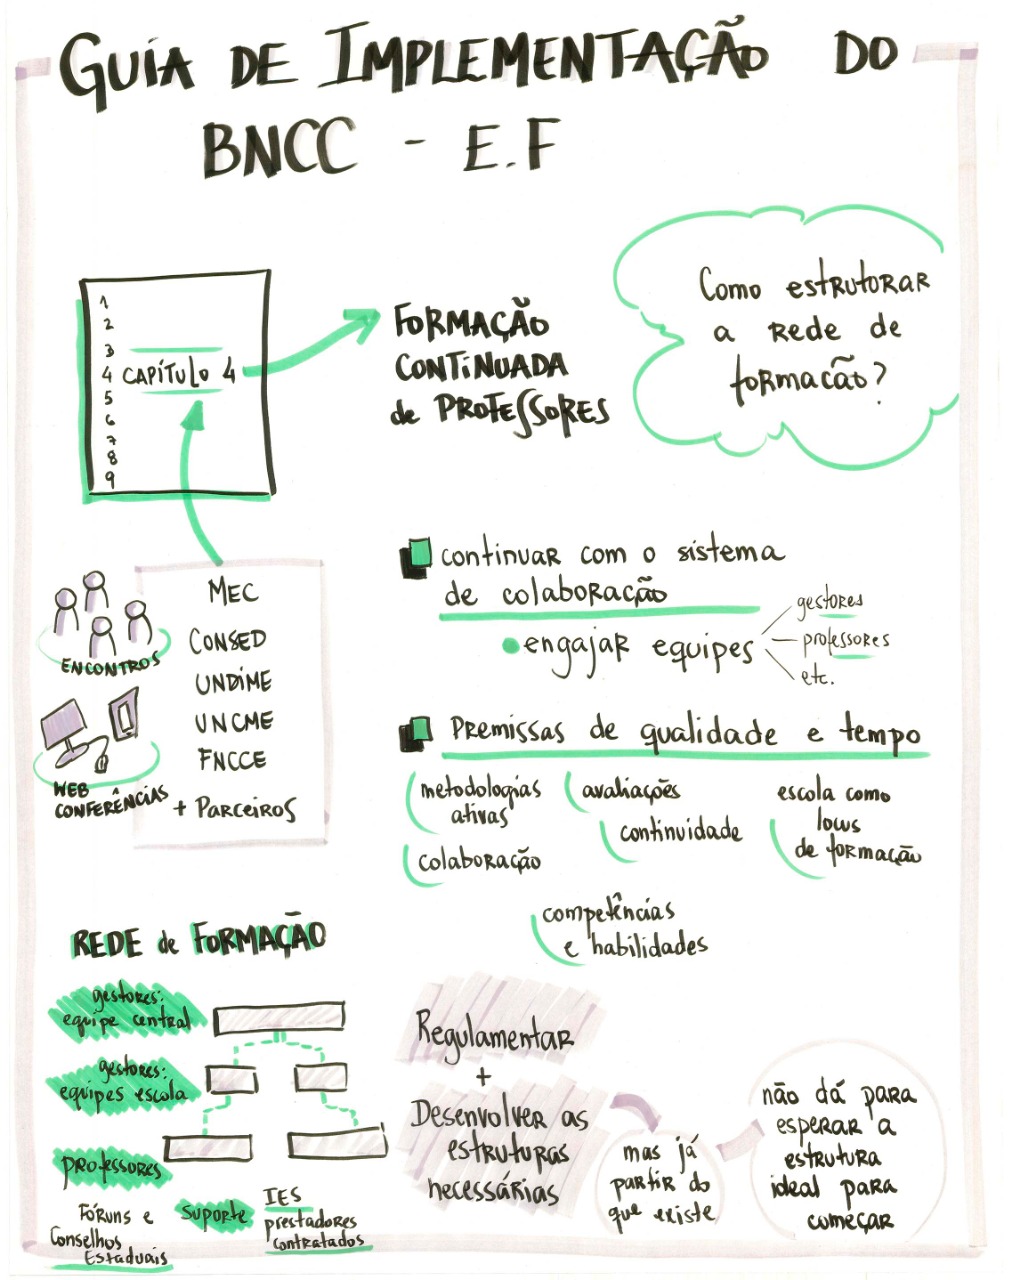 GUIA DE IMPLEMENTAÇÃO DO
BNCC - E.F
1
2
3
4 CAPÍTULO 4
5
6
7
8
9
FORMAÇÃO
CONTINUADA
de PROFESSORES
Como estrutorar
a rede de
formacão?
MEC
CONSED
UNDIME
UNCME
FNCCE
+ PARCEIROS
ENCONTROS
WEB
CONFERÊNCIAS
continuar com o sistema
de colaboração
engajar equipes
gestores
professores
etc.
Premissas de qualidade e tempo
metodologias
ativas
colaboração
avaliações
continuidade
escola como
locus
de formação
competências
e habilidades
REDE de FORMAÇÃO
gestores:
equipe central
gestores:
equipes escola
professores
Fóruns e
Conselhos
Estaduais
suporte
IES
prestadores
contratados
Regulamentar
+
Desenvolver as
estruturas
necessárias
mas já
partir do
que existe
não dá para
esperar a
estrutura
ideal para
começar